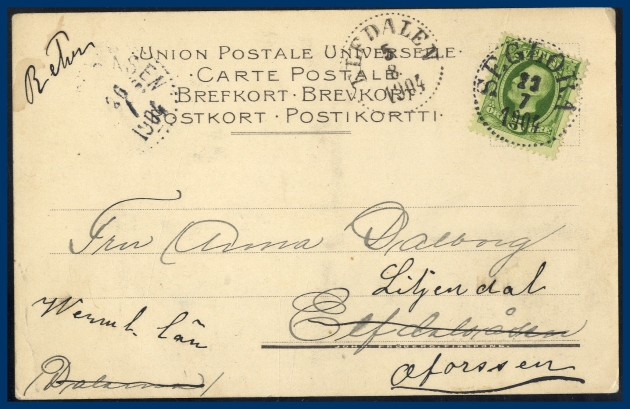 Retur
UNION POSTALE UNIVERSELLE.
· CARTE POSTALE ·
BREFKORT · BREVKORT
POSTKORT · POSTIKORTTI ·
ÅSEN
26
7
1904
ELFDALEN
5
8
1904
SEGLORA
23
7
1904
Fru Anna Dalborg
Liljendal
Elfdalsåsen
Wermh. län
(Dalarna)
Æforssen